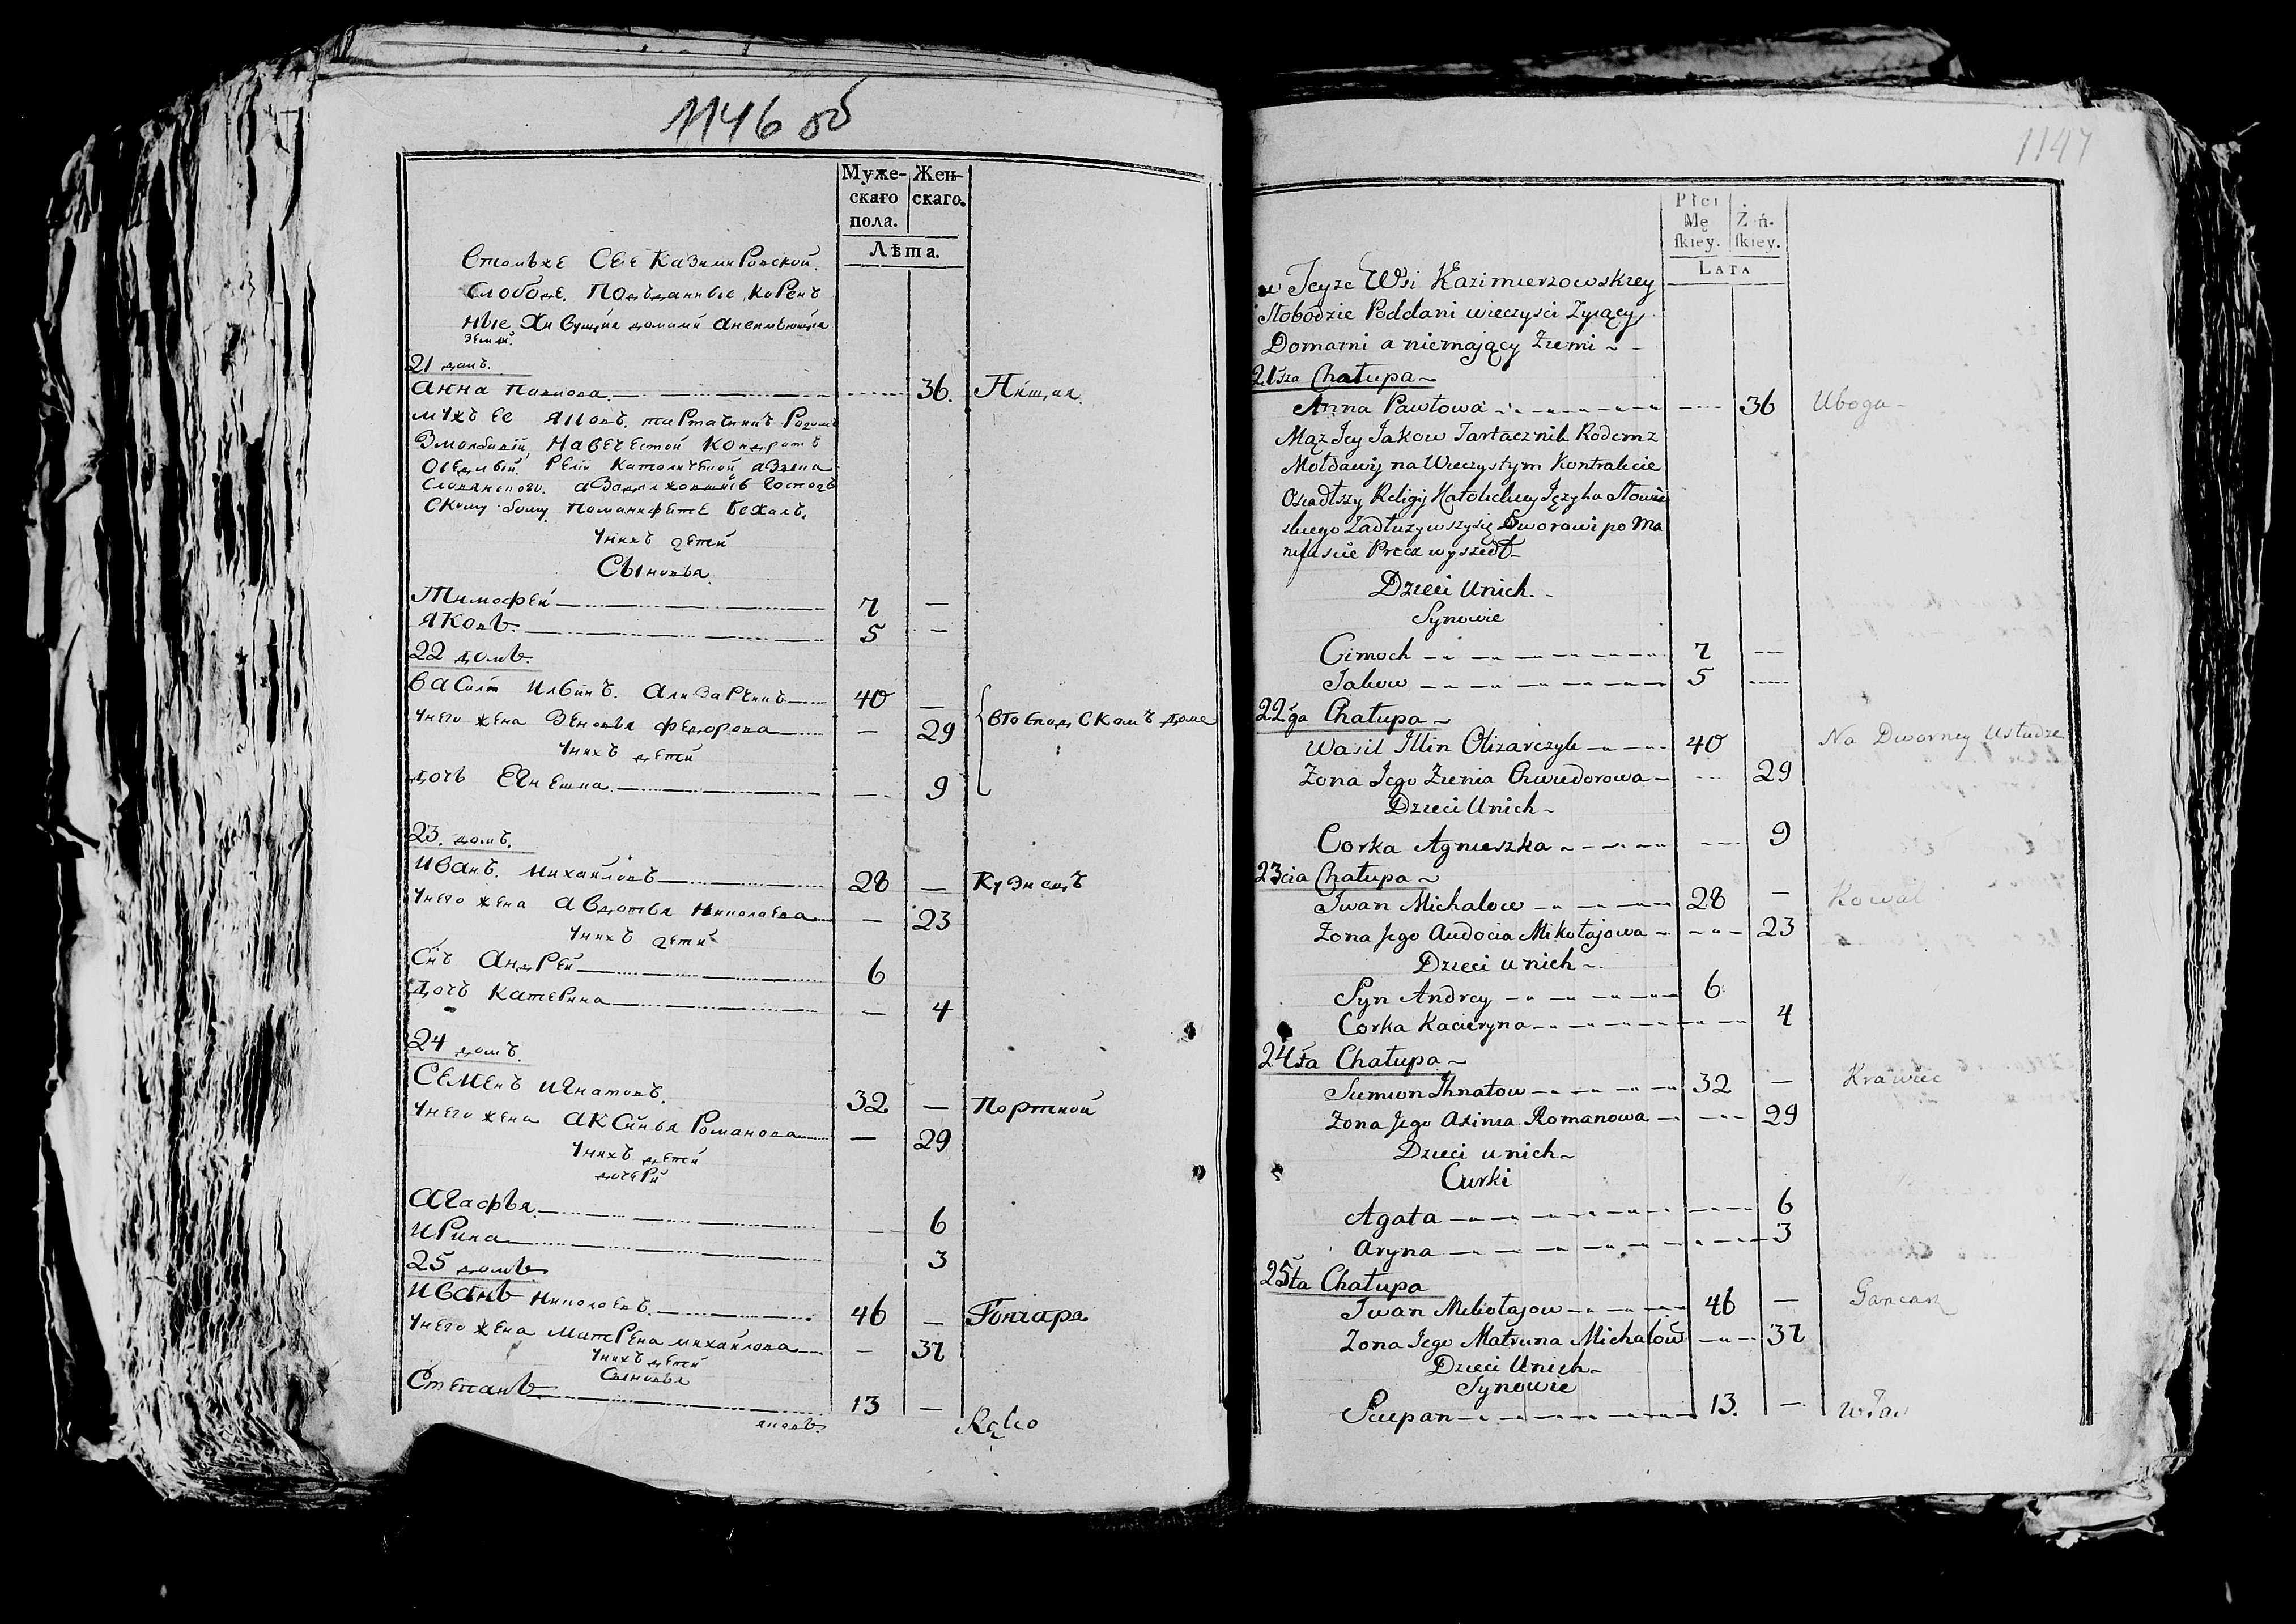 1146 об
Муже- Жен-
скаго скаго.
пола.
Лѣта.
Казимировской
Слободе. Подъданные корень
ные, Живущия домами
земли.
21 домъ.
Анна Павлова 36. Нищая.
мужъ ее Яковъ
Кондратъ
Католической
Господ
скому
Унихъ детей
Сыновья
Тимофей 7 —
Яковъ. 5 —
22 домъ.
Василй Ильинъ. 40 —
Унего жена Зеновья Федорова — 29
Унихъ детей
дочь Егнешка — 9
23. домъ.
Иванъ. Михайловъ 28 — Кузнецъ
Унего жена Авдотья Николаева — 23
Унихъ детей
Снъ Андрей 6
Дочь Катерина — 4
24 домъ.
Семенъ Игнатовъ. 32 — Портной
Унего жена Аксинья Романова — 29
Унихъ детей
дочери
Агафья 6
Ирина 3
25 домъ
Иванъ Николаевъ. 46 — Гончаръ
Унего жена Матрена Михайлова — 37
Унихъ детей
Сыновья
Степанъ 13 —
яковъ.
1147
Płci
Mę Ż ń-
ſkiey. ſkiey.
LATA
w Teyze Wsi Kazimierzowskiey
Słobodzie Poddani wieczyści Zyiący
Domami a niemaiący Ziemi
21sza Chałupa
Anna Pawłowa 36 Uboga
Mąz Jey Jakow Tartacznik Rodem z
Mołdawij na Wieczystym Kontrakcie
Osiadłszy Religij Katolickiey Języka Słowie
skiego Zadłuzywszysię Dworowi po Ma
nifescie Precz wyszedł
Dzieci Unich.
Synowie
Cimoch 7 —
Jakow 5 —
22ga Chałupa
Wasil Illin Olizarczyk 40 Na Dworney Usłudze
Zona Jego Zienia Chwiedorowa 29
Dzieci Unich
Corka Agnieszka 9
23cia Chałupa
Iwan Michałow 28 — Kowal
Zona Jego Audocia Mikołajowa 23
Dzieci unich
Syn Andrey 6
Corka Kacieryna 4
24ta Chałupa
Siemion Ihnatow 32 — Krawiec
Zona Jego Axinia Romanowa 29
Dzieci unich
Curki
Agata 6
Aryna 3
25ta Chałupa
Iwan Mikołajow 46 — Gancarz
Zona Jego Matruna Michałow 37
Dzieci Unich
Synowie
Sciepan 13. —